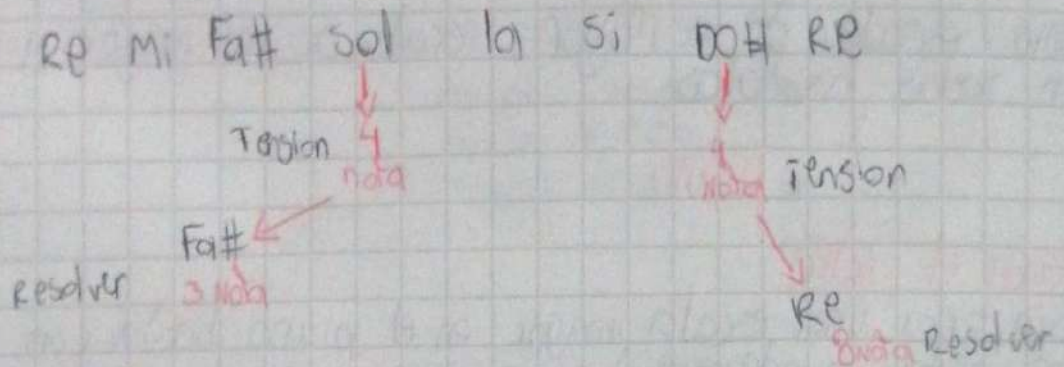 Re Mi Fa# Sol la Si DO# Re
Tension 4
nota
nota Tension
Fa#
Resolver 3 Nota
Re
8 nota Resolver